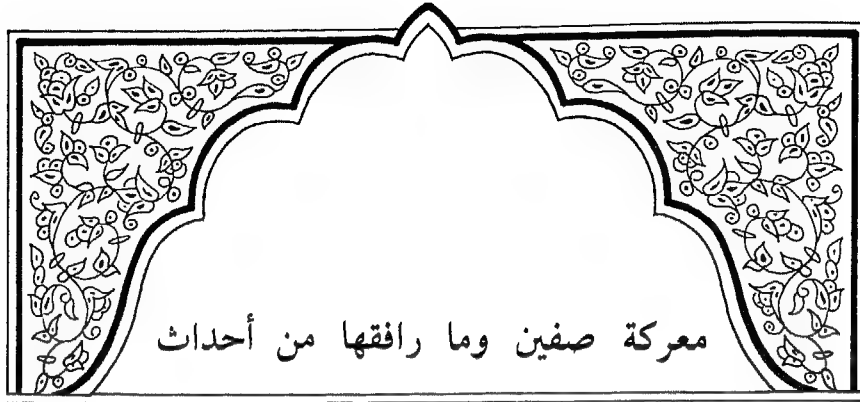 معركة صفين وما رافقها من أحداث